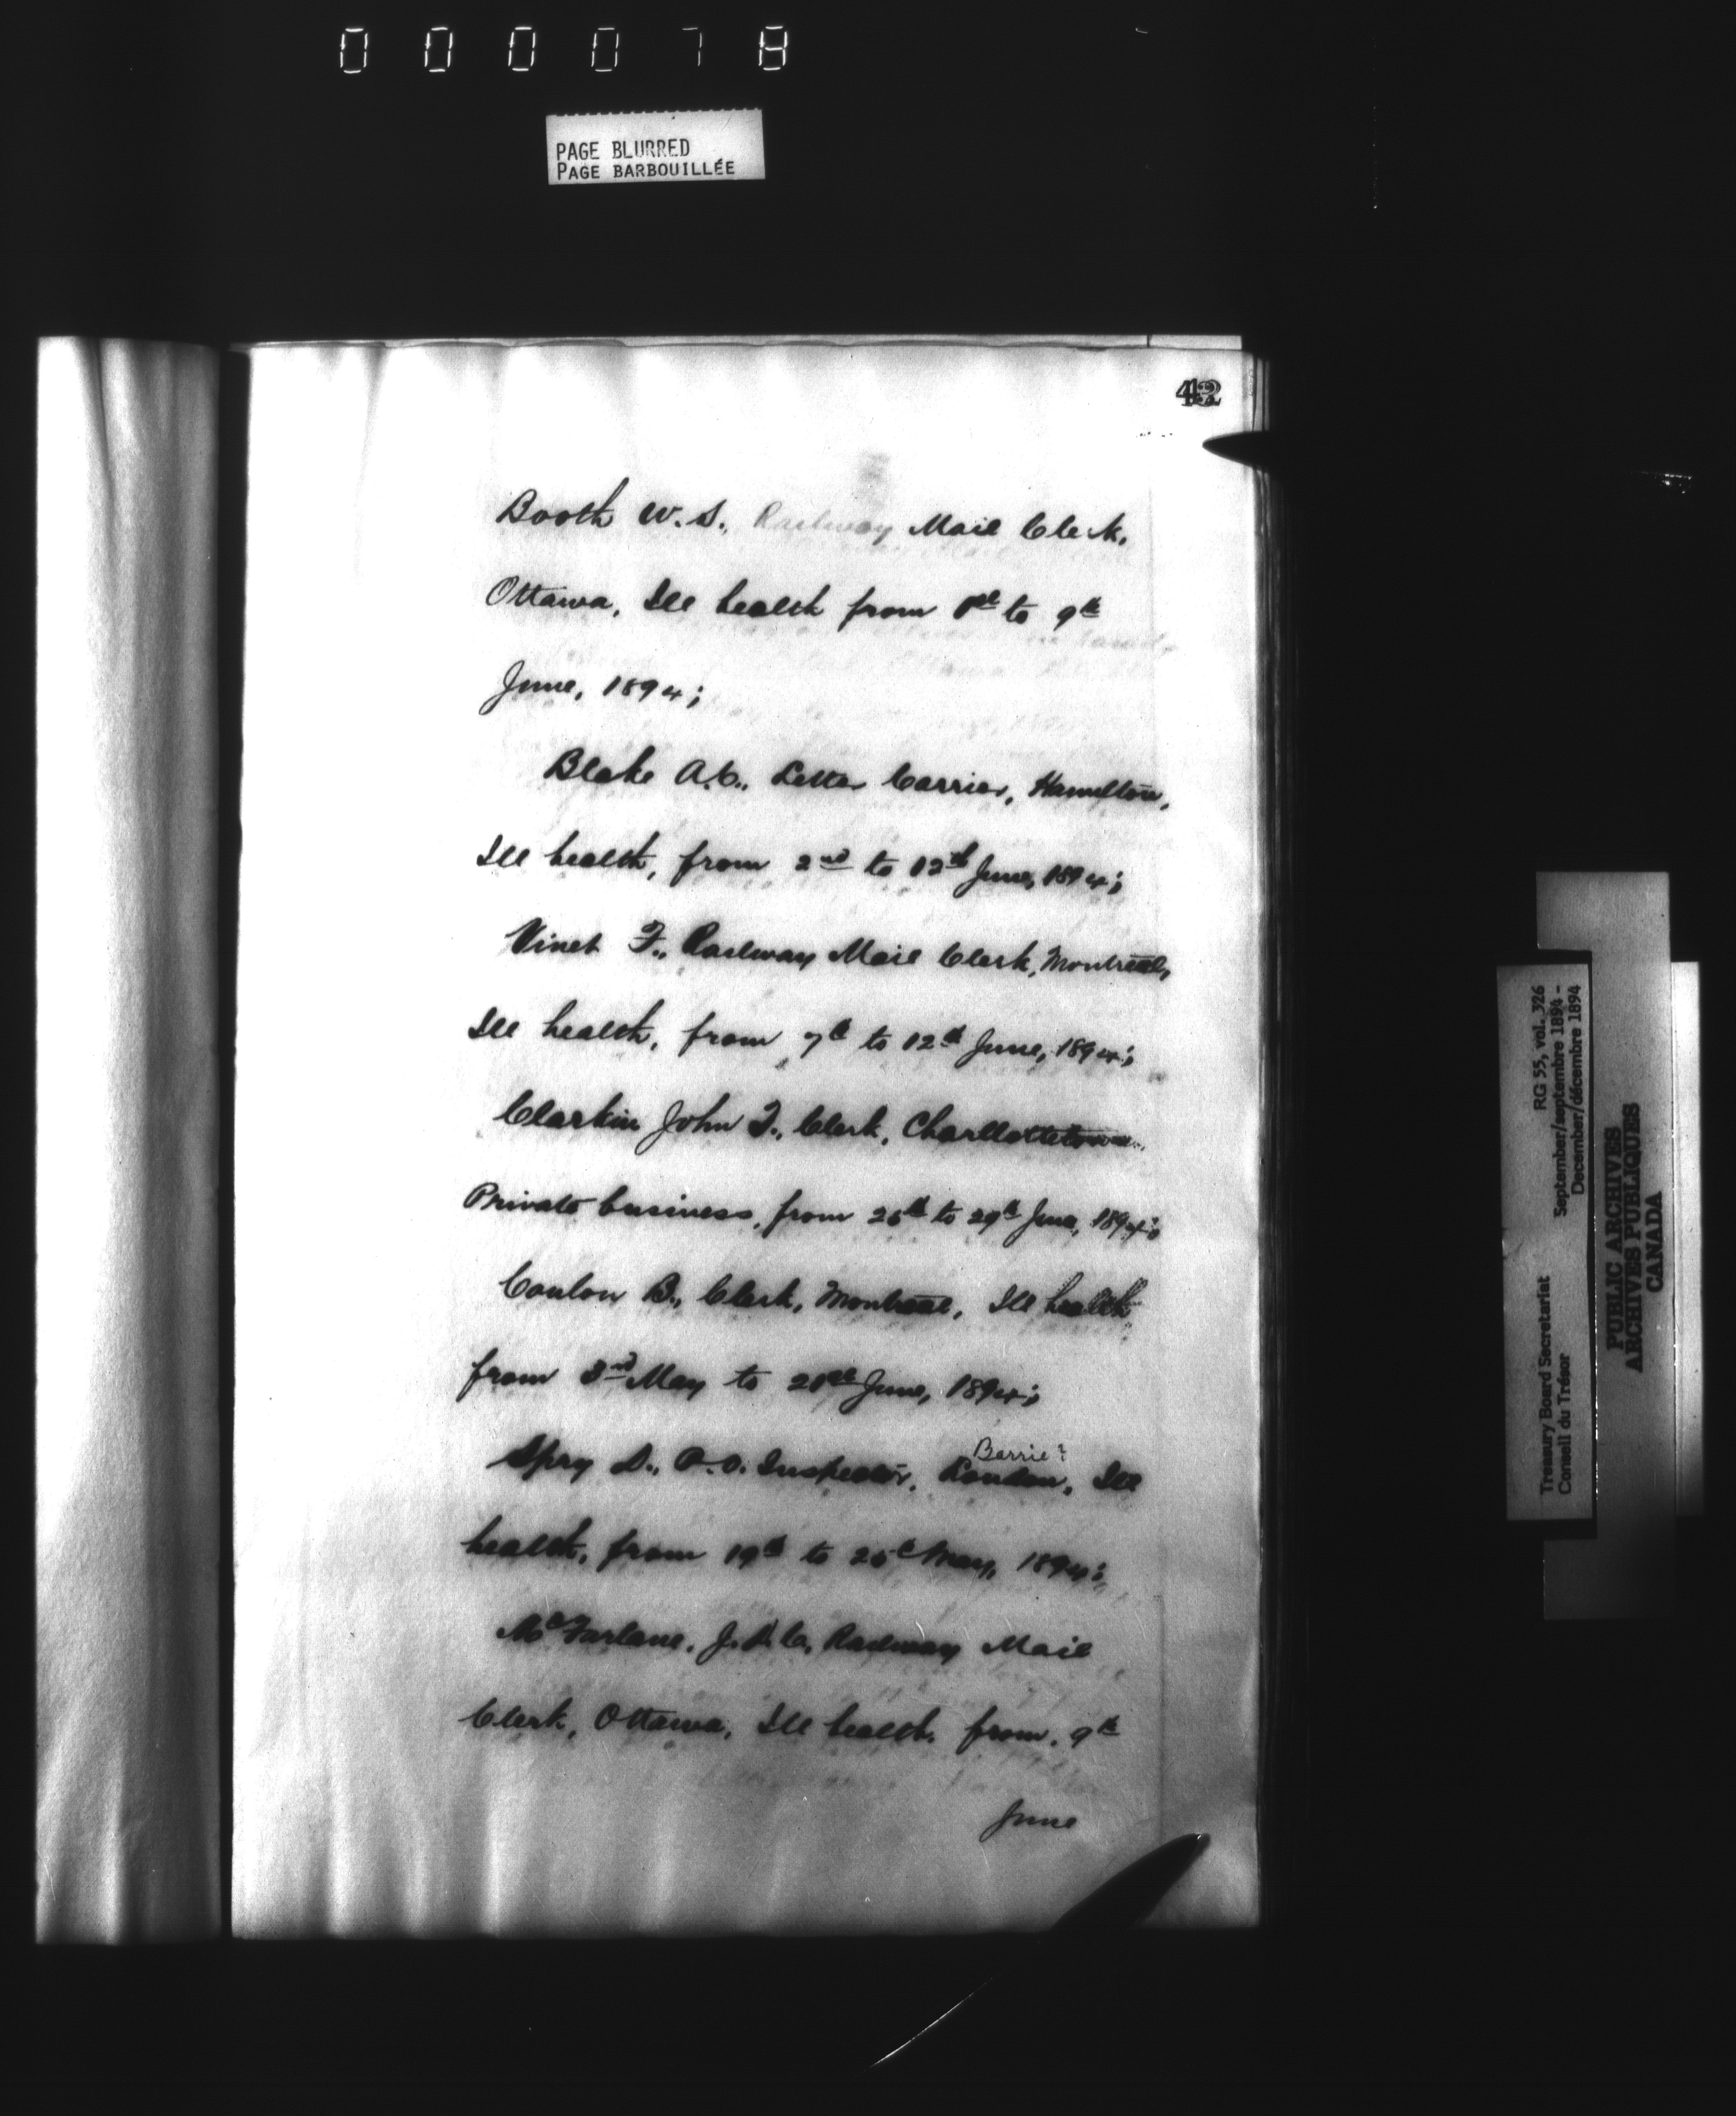 000078
PAGE BLURRED
PAGE BARBOUILLÉE
42
Booth W. S., Railway Mail Clerk,
Ottawa, Ill health from 1st to 9th
June, 1894;
Blake A. C., Letter Carrier, Hamilton,
Ill health, from 2nd to 12th June, 1894;
Vinet F., Railway Mail Clerk, Montreal,
Ill health, from 7th to 12th June, 1894;
Clarkin John T., Clerk, Charllottetown.
Private business, from 26th to 29th June, 1894;
Coulon B., Clerk, Montreal, Ill health
from 3rd May to 21st June, 1894;
Barrie?
Spry D., P.O. Inspector, London, Ill
health, from 19th to 26th May, 1894;
McFarlane, J. C., Railway Mail
Clerk, Ottawa, Ill health, from, 9th
June
Treasury Board Secretariat RG 55, vol. 326
Conseil du Trésor September/septembre 1894 -
December/décembre 1894
PUBLIC ARCHIVES
ARCHIVES PUBLIQUES
CANADA